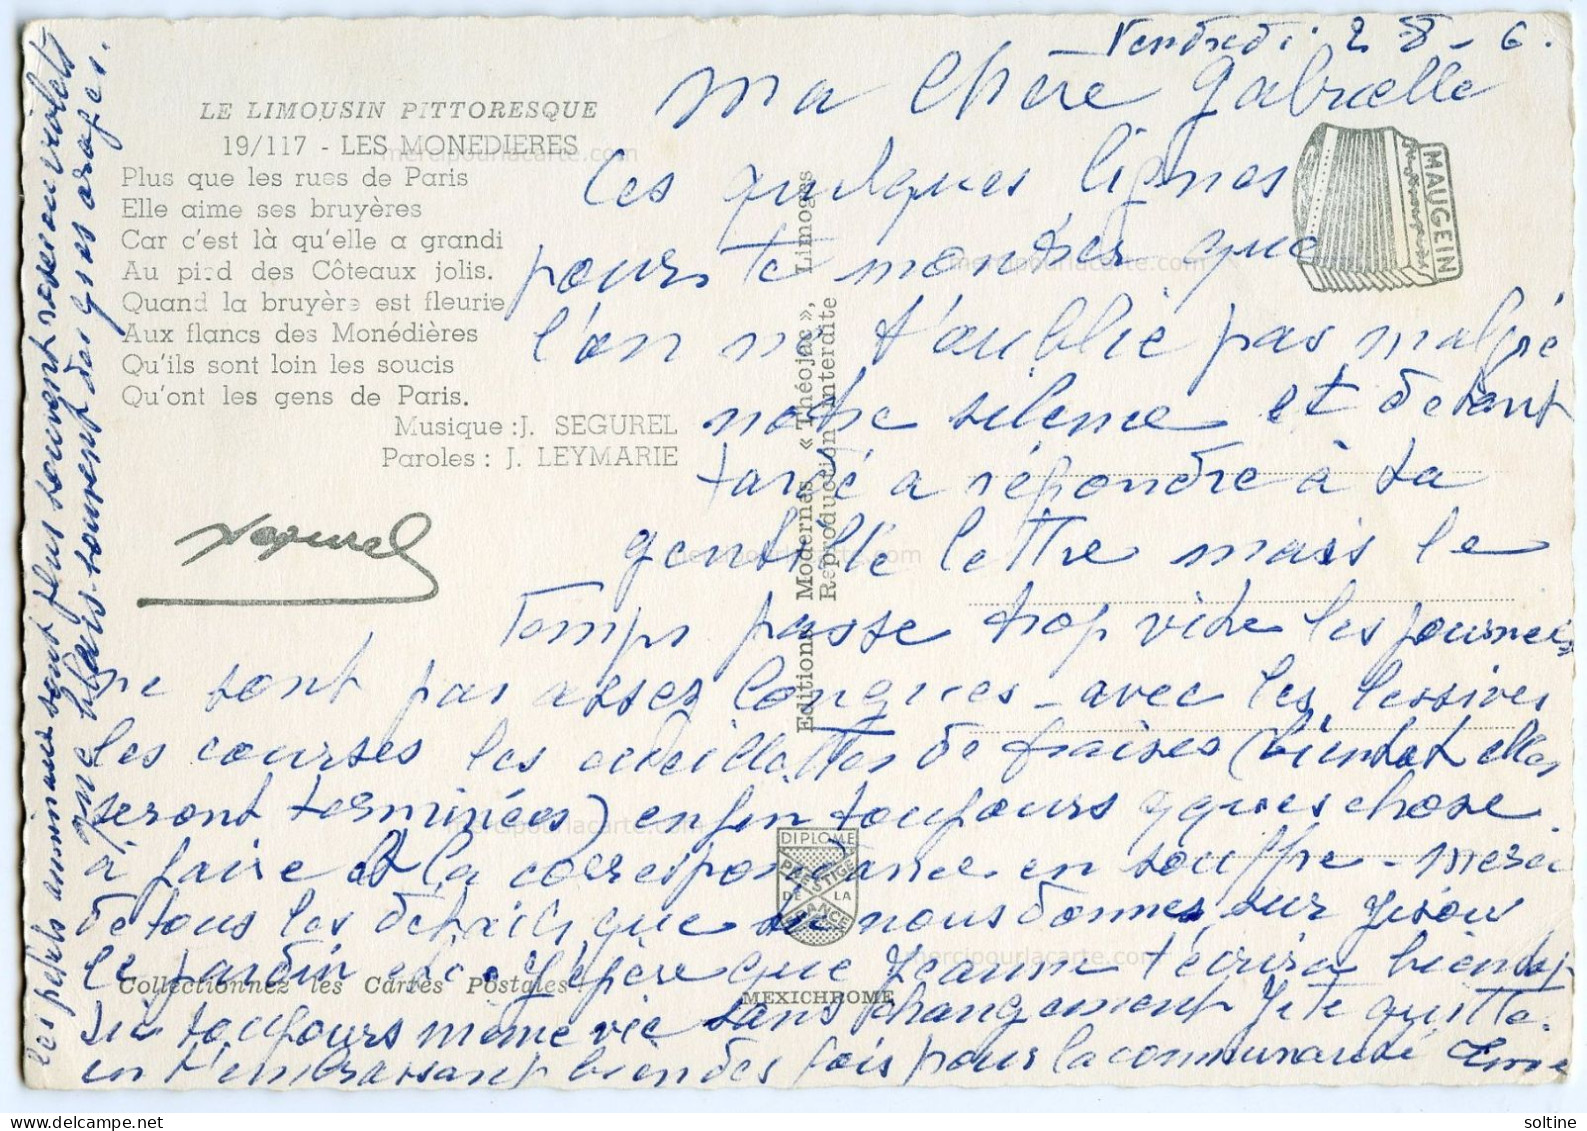 Vendredi 28-6.
Ma Chère Gabrielle
Ces quelques lignes
pour te montrer que
l'on ne t'oublie pas malgré
notre silence et d'etant
tardé a répondre à ta
gentille lettre mais le
Temps passe trop vide les journees
ne sont pas assez longues - avec les lessives
les courses les cueillettes de fraises (bientot elles
seront terminées) enfin toujours qques chose
à faire et la correspondance en souffre - merci
de tous les details que tu nous donnes sur Gisou
le jardin etc. J'espère que Jeanne t'ecrira bientot
ici toujours meme vie sans changement Je te quitte
en t'embrassant bien des fois pour la communauté
les petits animaux sont plus souvent
que blais souvent des gros orages.
LE LIMOUSIN PITTORESQUE
19/117 - LES MONEDIERES
Plus que les rues de Paris
Elle aime ses bruyères
Car c'est là qu'elle a grandi
Au pied des Côteaux jolis.
Quand la bruyère est fleurie
Aux flancs des Monédières
Qu'ils sont loin les soucis
Qu'ont les gens de Paris.
Musique : J. SEGUREL
Paroles : J. LEYMARIE
Segurel
Collectionnez les Cartes Postales !
Editions Modernes « Théojac », Limoges
Reproduction Interdite
MAUGEIN
DIPLOME
PRESTIGE
DE LA
FRANCE
MEXICHROME
mercipourlacarte.com
mercipourlacarte.com
mercipourlacarte.com
mercipourlacarte.com
mercipourlacarte.com
soltine